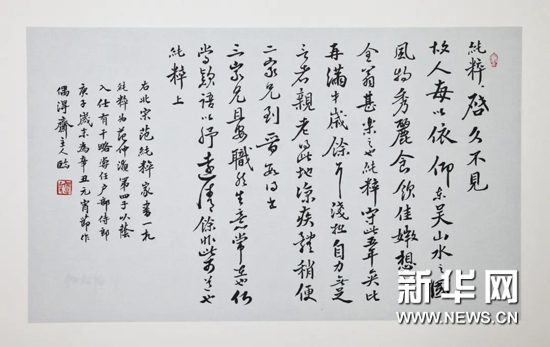 純粹啓久不見
故人每以依仰東吴山水之國
風物秀麗食飲佳嫩想
全翁甚樂之也純粹守此五年矣比
再滿半歲餘耳淺拙自力無足
言者親老得此地涼疾體稍便
二家兄到晉
三家兄且安職
當款語以抒遠情餘非此可道也
純粹上
右北宋范純粹家書一札
純粹為范仲淹第四子以蔭
入仕有干略 任户部侍郎
庚子歲末為辛丑元宵節作
偶得齋主人臨
新华网
WWW.NEWS.CN